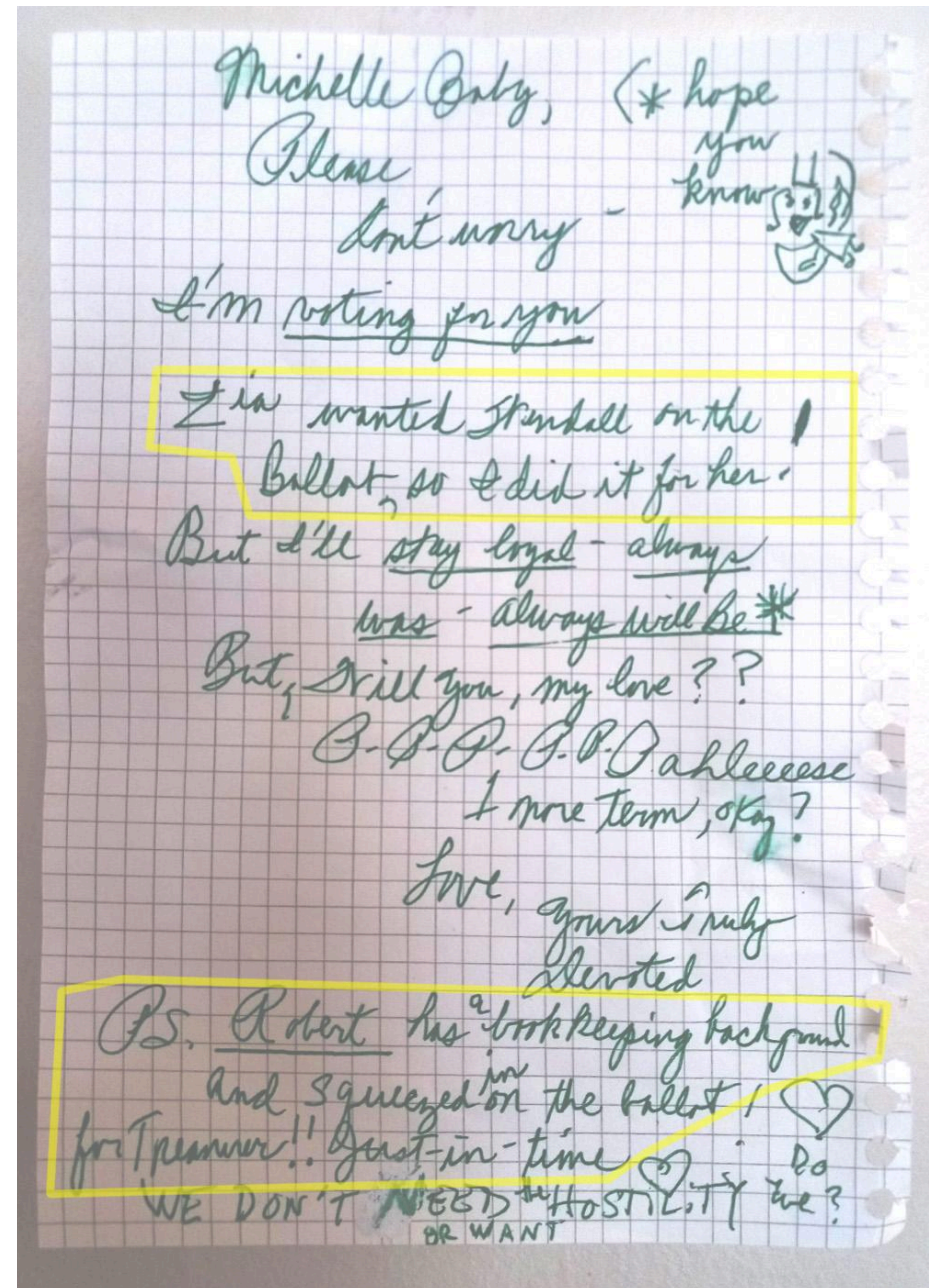 Michelle Baby, (* hope
you
know
Please
don't worry -
I'm voting for you
Zia wanted Kendall on the
Ballot, so I did it for her!
But I'll stay loyal - always
was - always will Be *
But, Will you, my love??
P-P-P-P.P.Pahleeeese
1 more term, okay?
Love,
Yours Truly
Devoted
PS. Robert has a bookkeeping background
and squeezed in on the ballot!
for Treasurer!! Just-in-time
WE DON'T NEED the HOSTILITY Do We?
OR WANT